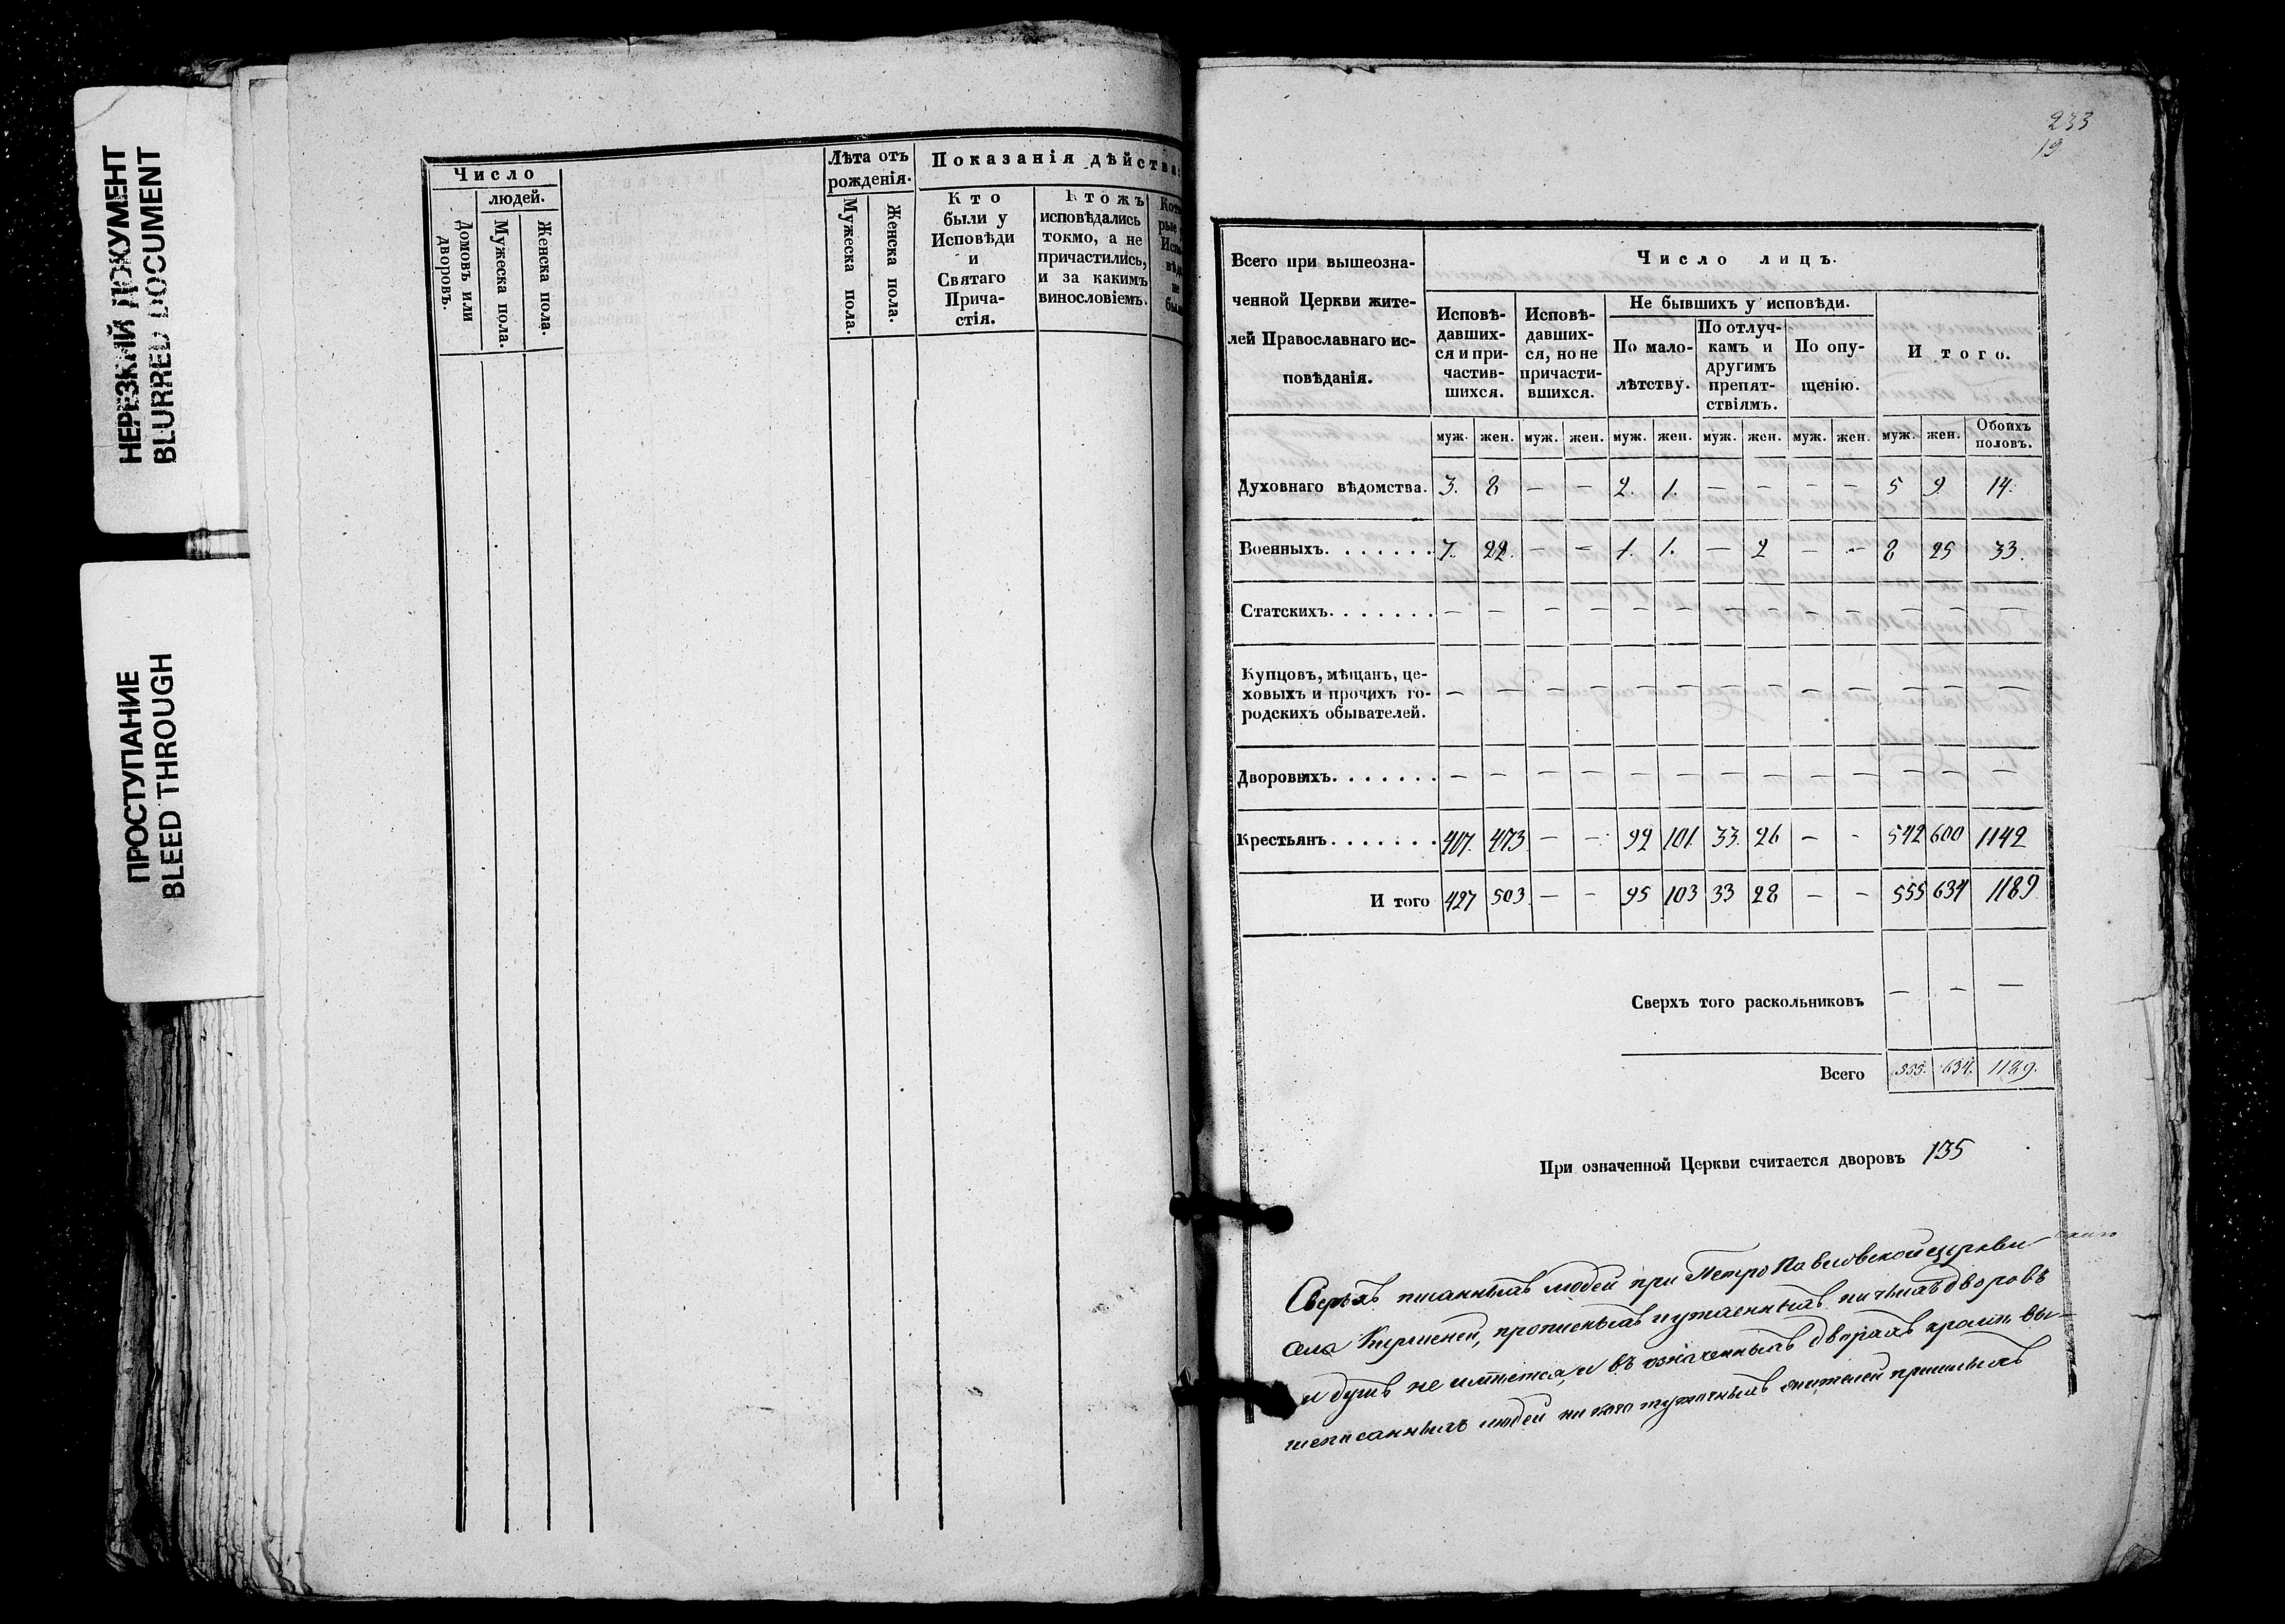 НЕРЕЗКИЙ ДОКУМЕНТ
BLURRED DOCUMENT
ПРОСТУПАНИЕ
BLEED THROUGH
Число
людей.
Домовъ или дворовъ.
Мужеска пола.
Женска пола.
Лѣта отъ
рожденія.
Мужеска пола.
Женска пола.
Показанія дѣйства
Кто
были у
Исповѣди
и
Святаго
Прича-
стія.
Ктожъ
исповѣдались
токмо, а не
причастились,
и за какимъ
винословіемъ.
233
19
Всего при вышеозна-
ченной Церкви жите-
лей Православнаго ис-
повѣданія.
Число лицъ.
Исповѣ-
давших-
ся и при-
частив-
шихся.
Исповѣ-
давших-
ся, но не
причасти-
вшихся.
Не бывшихъ у исповѣди.
По мало-
лѣтству.
По отлуч-
камъ и
другимъ
препят-
ствіямъ.
По опу-
щенію.
И того.
муж. жен. муж. жен. муж. жен. муж. жен. муж. жен. муж. жен. Обоихъ половъ.
Духовнаго вѣдомства. 3. 8 — — 2. 1. — — — — 5 9. 14.
Военныхъ. . . . . . . 7. 22. — — 1. 1. — 2 — — 8 25 33.
Статскихъ. . . . . . . — — — — — — — — — — — — —
Купцовъ, мѣщанъ, це-
ховыхъ и прочихъ го- — — — — — — — — — — — — —
родскихъ обывателей.
Дворовыхъ. . . . . . . — — — — — — — — — — — — —
Крестьянъ. . . . . . . 417. 473. — — 92 101. 33. 26 — - 542 600 1142
И того 427 503. — - 95 103 33 28 — - 555 634 1189
Сверхъ того раскольниковъ — — —
Всего 555. 634. 1189.
При означенной Церкви считается дворовъ 135
Сверхъ писанныхъ людей при Петро Павловской церкви
села прописныхъ и утаенныхъ ничьихъ дворовъ
и душъ не имѣется, и въ означенныхъ дворахъ кромѣ вы-
шеписанныхъ людей жителей пришлыхъ